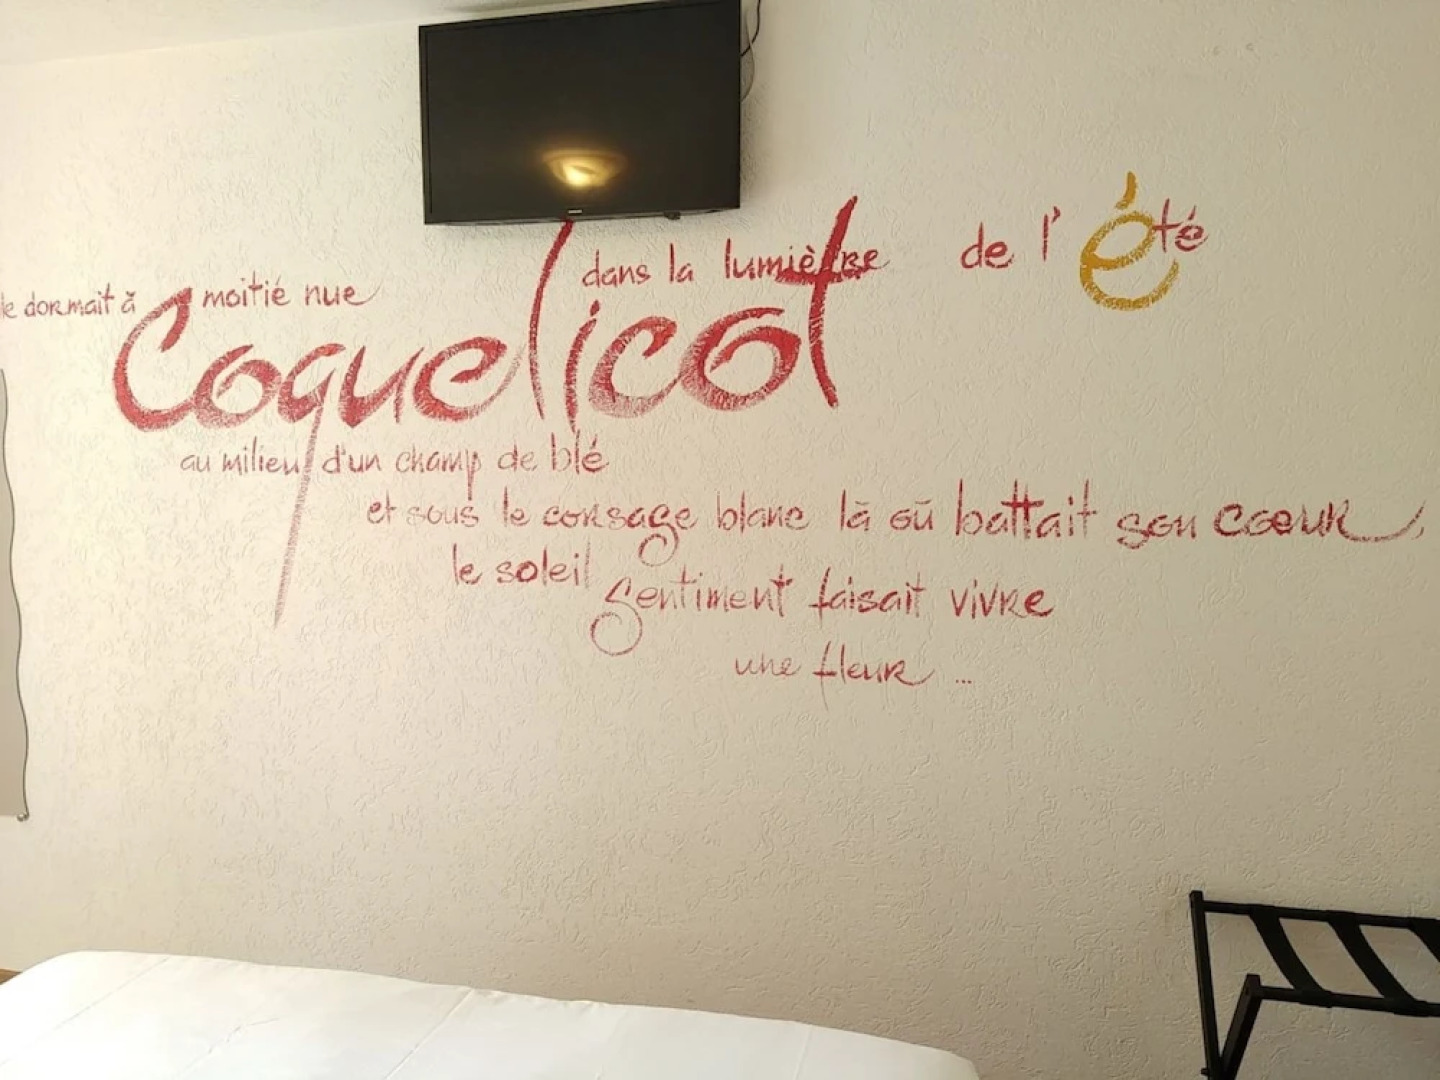 le dormait à moitié nue dans la lumière de l'été
Coquelicot
au milieu d'un champ de blé
et sous le corsage blanc là où battait son coeur,
le soleil gentiment faisait vivre
une fleur ...